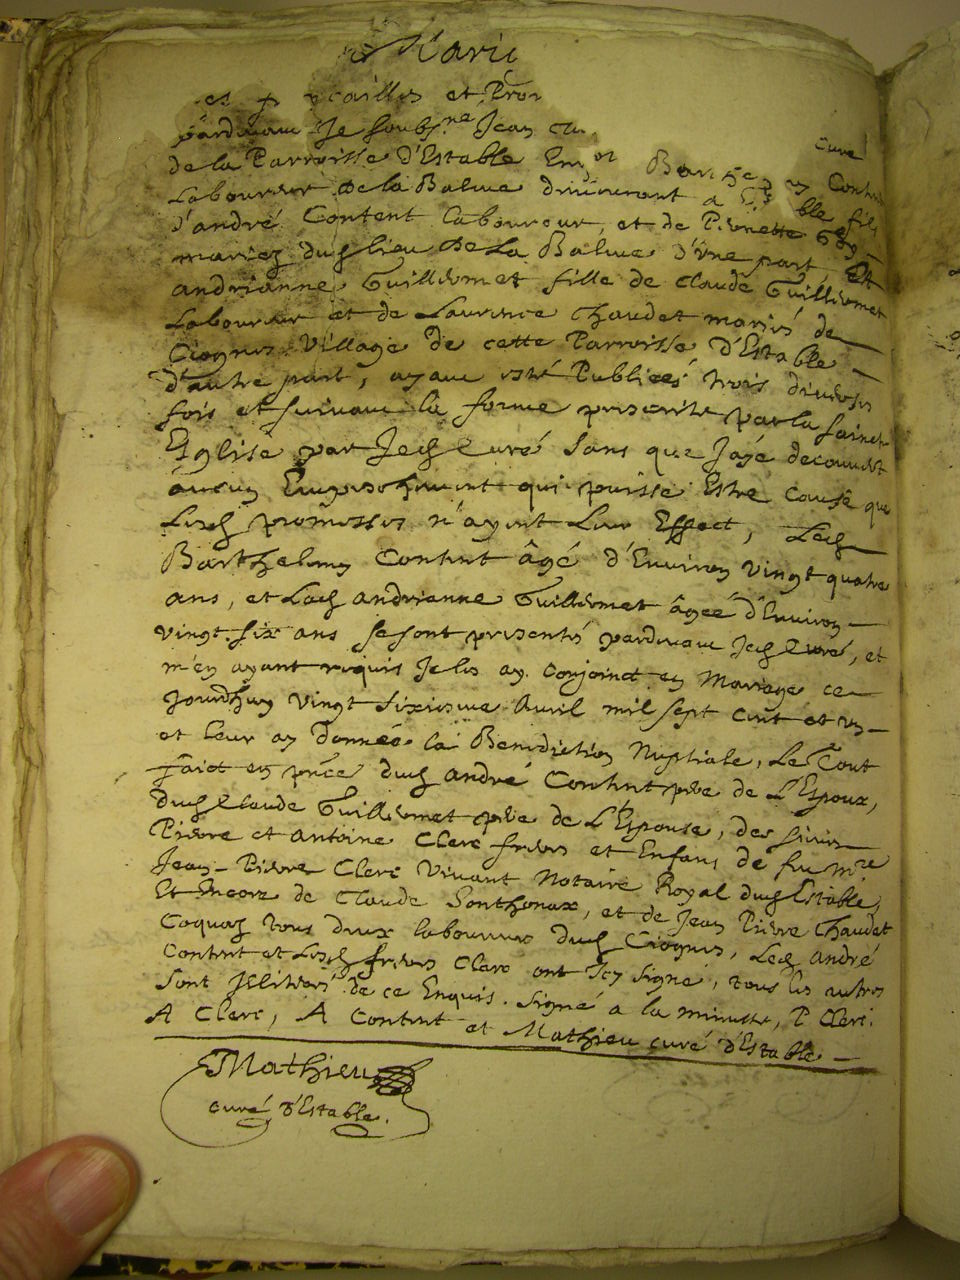 Mari
es f caillis et Pro
pardevant Je soubsne Jean
curé
de la Parroisse d'Estable Barthe Content
Laboureur de la Balme demeurant a Estable fils
d'andré Content laboureur, et de Pernette
mariez dudi lieu de La Balme d'une part, Et
andrianne Guillermet fille de Claude Guillermet
Laboureur et de Laurence Chaudet mariés de
Ciognis Village de cette Parroisse d'Estable
d'autre part, ayant esté Publiees trois diverses
fois et suivant la forme prescritte par la saincte
Eglise par Jed Curé sans que J'aye decouvert
aucun Empeschement qui puisse Estre cause que
Lesd promesses n'ayent Leur Effect, Led
Barthelmy Content âgé d'Environ vingt quatre
ans, et Lad andrianne Guillermet âgée d'Environ
vingt six ans se sont presentés pardevant Jed Curé, et
m'en ayant requis Je les ay Conjoinct en Mariage ce
jourdhuy vingt sixiesme Avril mil sept cent et un
et leur ay donnée la Benediction Nuptiale, Le Tout
faict en pñce dud andré Content pere de L'Espoux,
dud Claude Guillermet pere de L'Espouse, des sieurs
Pierre et Antoine Clerc freres et Enfans de feu Mre
Jean-Pierre Clerc Vivant Notaire Royal dud Estable,
Et Encore de Claude Sonthonax, et de Jean Pierre Chaudet
Coquaz tous deux laboureurs dud Ciognis, Led André
Content et Lesd freres Clerc ont Icy signé, tous les autres
sont Jlliterés de ce Enquis. Signé a la minutte, P Clerc.
A Clerc, A Content et Mathieu curé d'Estable
Mathieu
curé d'Estable.